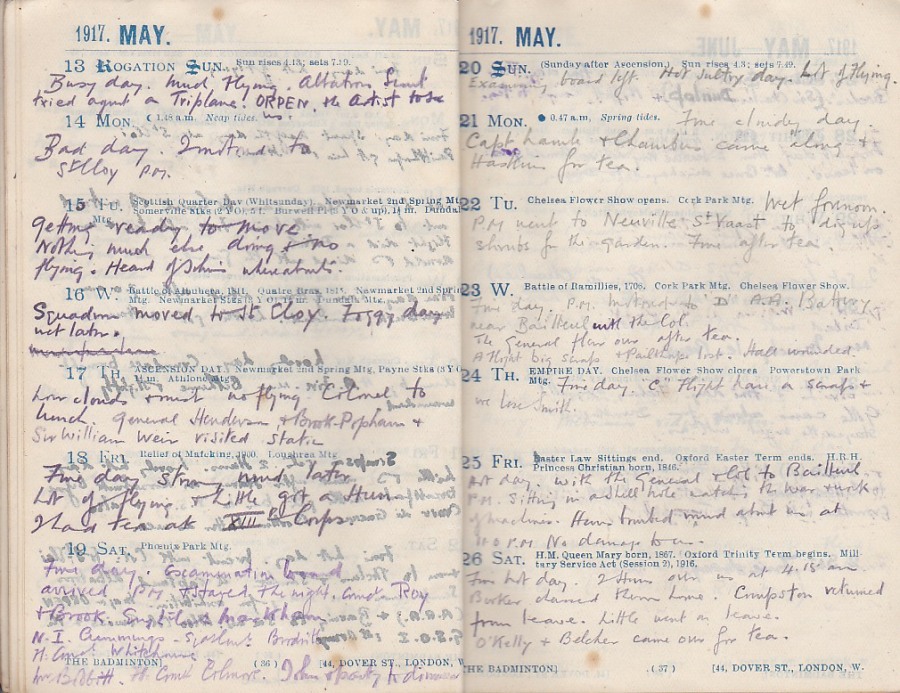 1917. MAY.
13 ROGATION SUN. Sun rises 4.13; sets 7.19.
Busy day. Much Flying. Albatross Scout
tried against a Triplane. ORPEN, the Artist to
14 MON. 1.48 a.m. Neap tides.
Bad day. I motored to
St Eloy P.M.
15 TU. Scottish Quarter Day (Whitsunday). Newmarket 2nd Spring Mtg.
Somerville Stks (2 Y O), 5 f. Burwell Pl. (3 Y O & up), 1½ m. Dundalk
Mtg.
Getting ready to move
Nothing much else doing & no
flying. Heard of whereabouts.
16 W. Battle of Albuhera, 1811. Quatre Bras, 1815. Newmarket 2nd Spring
Mtg. Newmarket Stks (3 Y O), 1¼ m. Dundalk Mtg.
Squadron moved to St Eloy. Foggy day
wet later.
17 TH. ASCENSION DAY. Newmarket 2nd Spring Mtg, Payne Stks (3 Y O)
1¼ m. Athlone Mtg.
Low clouds & mist no flying. Colonel to
lunch. General Henderson, & Brook-Popham &
Sir William Weir visited Station
18 FRI. Relief of Mafeking, 1900. Loughrea Mtg.
Fine day strong wind later
Lot of flying & Little got a Hun
I had tea at XIIIth Corps
19 SAT. Phœnix Park Mtg.
Fine day. Examination board
arrived P.M. & stayed the night.
& Brook. Smyth
N. I. Cummings
Whitehouse
THE BADMINTON] (36) [44, DOVER ST., LONDON, W.
to dinner
1917. MAY.
20 SUN. (Sunday after Ascension). Sun rises 4.3; sets 7.29.
Hot sultry day. Lot of flying.
Examining board left.
21 MON. 0.47 a.m. Spring tides. Fine cloudy day.
Capt Lamb & Chambers came along &
Haskins for tea.
22 TU. Chelsea Flower Show opens. Cork Park Mtg. Wet forenoon.
P.M. went to Neuville St Vaast to dig up
shrubs for the garden. Fine after tea.
23 W. Battle of Ramillies, 1706. Cork Park Mtg. Chelsea Flower Show.
Fine day. P.M. Motored to "D" A.A. Battery
near Bailleul with the Col.
The General flew over after tea.
A flight big scrap & Pailthorpe lost. Hall wounded.
24 TH. EMPIRE DAY. Chelsea Flower Show closes. Powerstown Park
Mtg. Fine day "C" Flight have a scrap &
we lose Smith.
25 FRI. Easter Law Sittings end. Oxford Easter Term ends. H.R.H.
Princess Christian born, 1846.
Hot day. with the General & Col to Bailleul
P.M. Sitting in a shell hole watching the war & wreck
of machines. Huns bombed round about us at
P.M. No damage to us.
26 SAT. H.M. Queen Mary born, 1867. Oxford Trinity Term begins. Mili-
tary Service Act (Session 2), 1916.
Fine hot day. 2 Huns over us at 4.15 am.
Barker chased them home. Compston returned
from leave. Little went on leave.
O'Kelly & Belcher came over for tea.
THE BADMINTON] (37) [44, DOVER ST., LONDON, W.